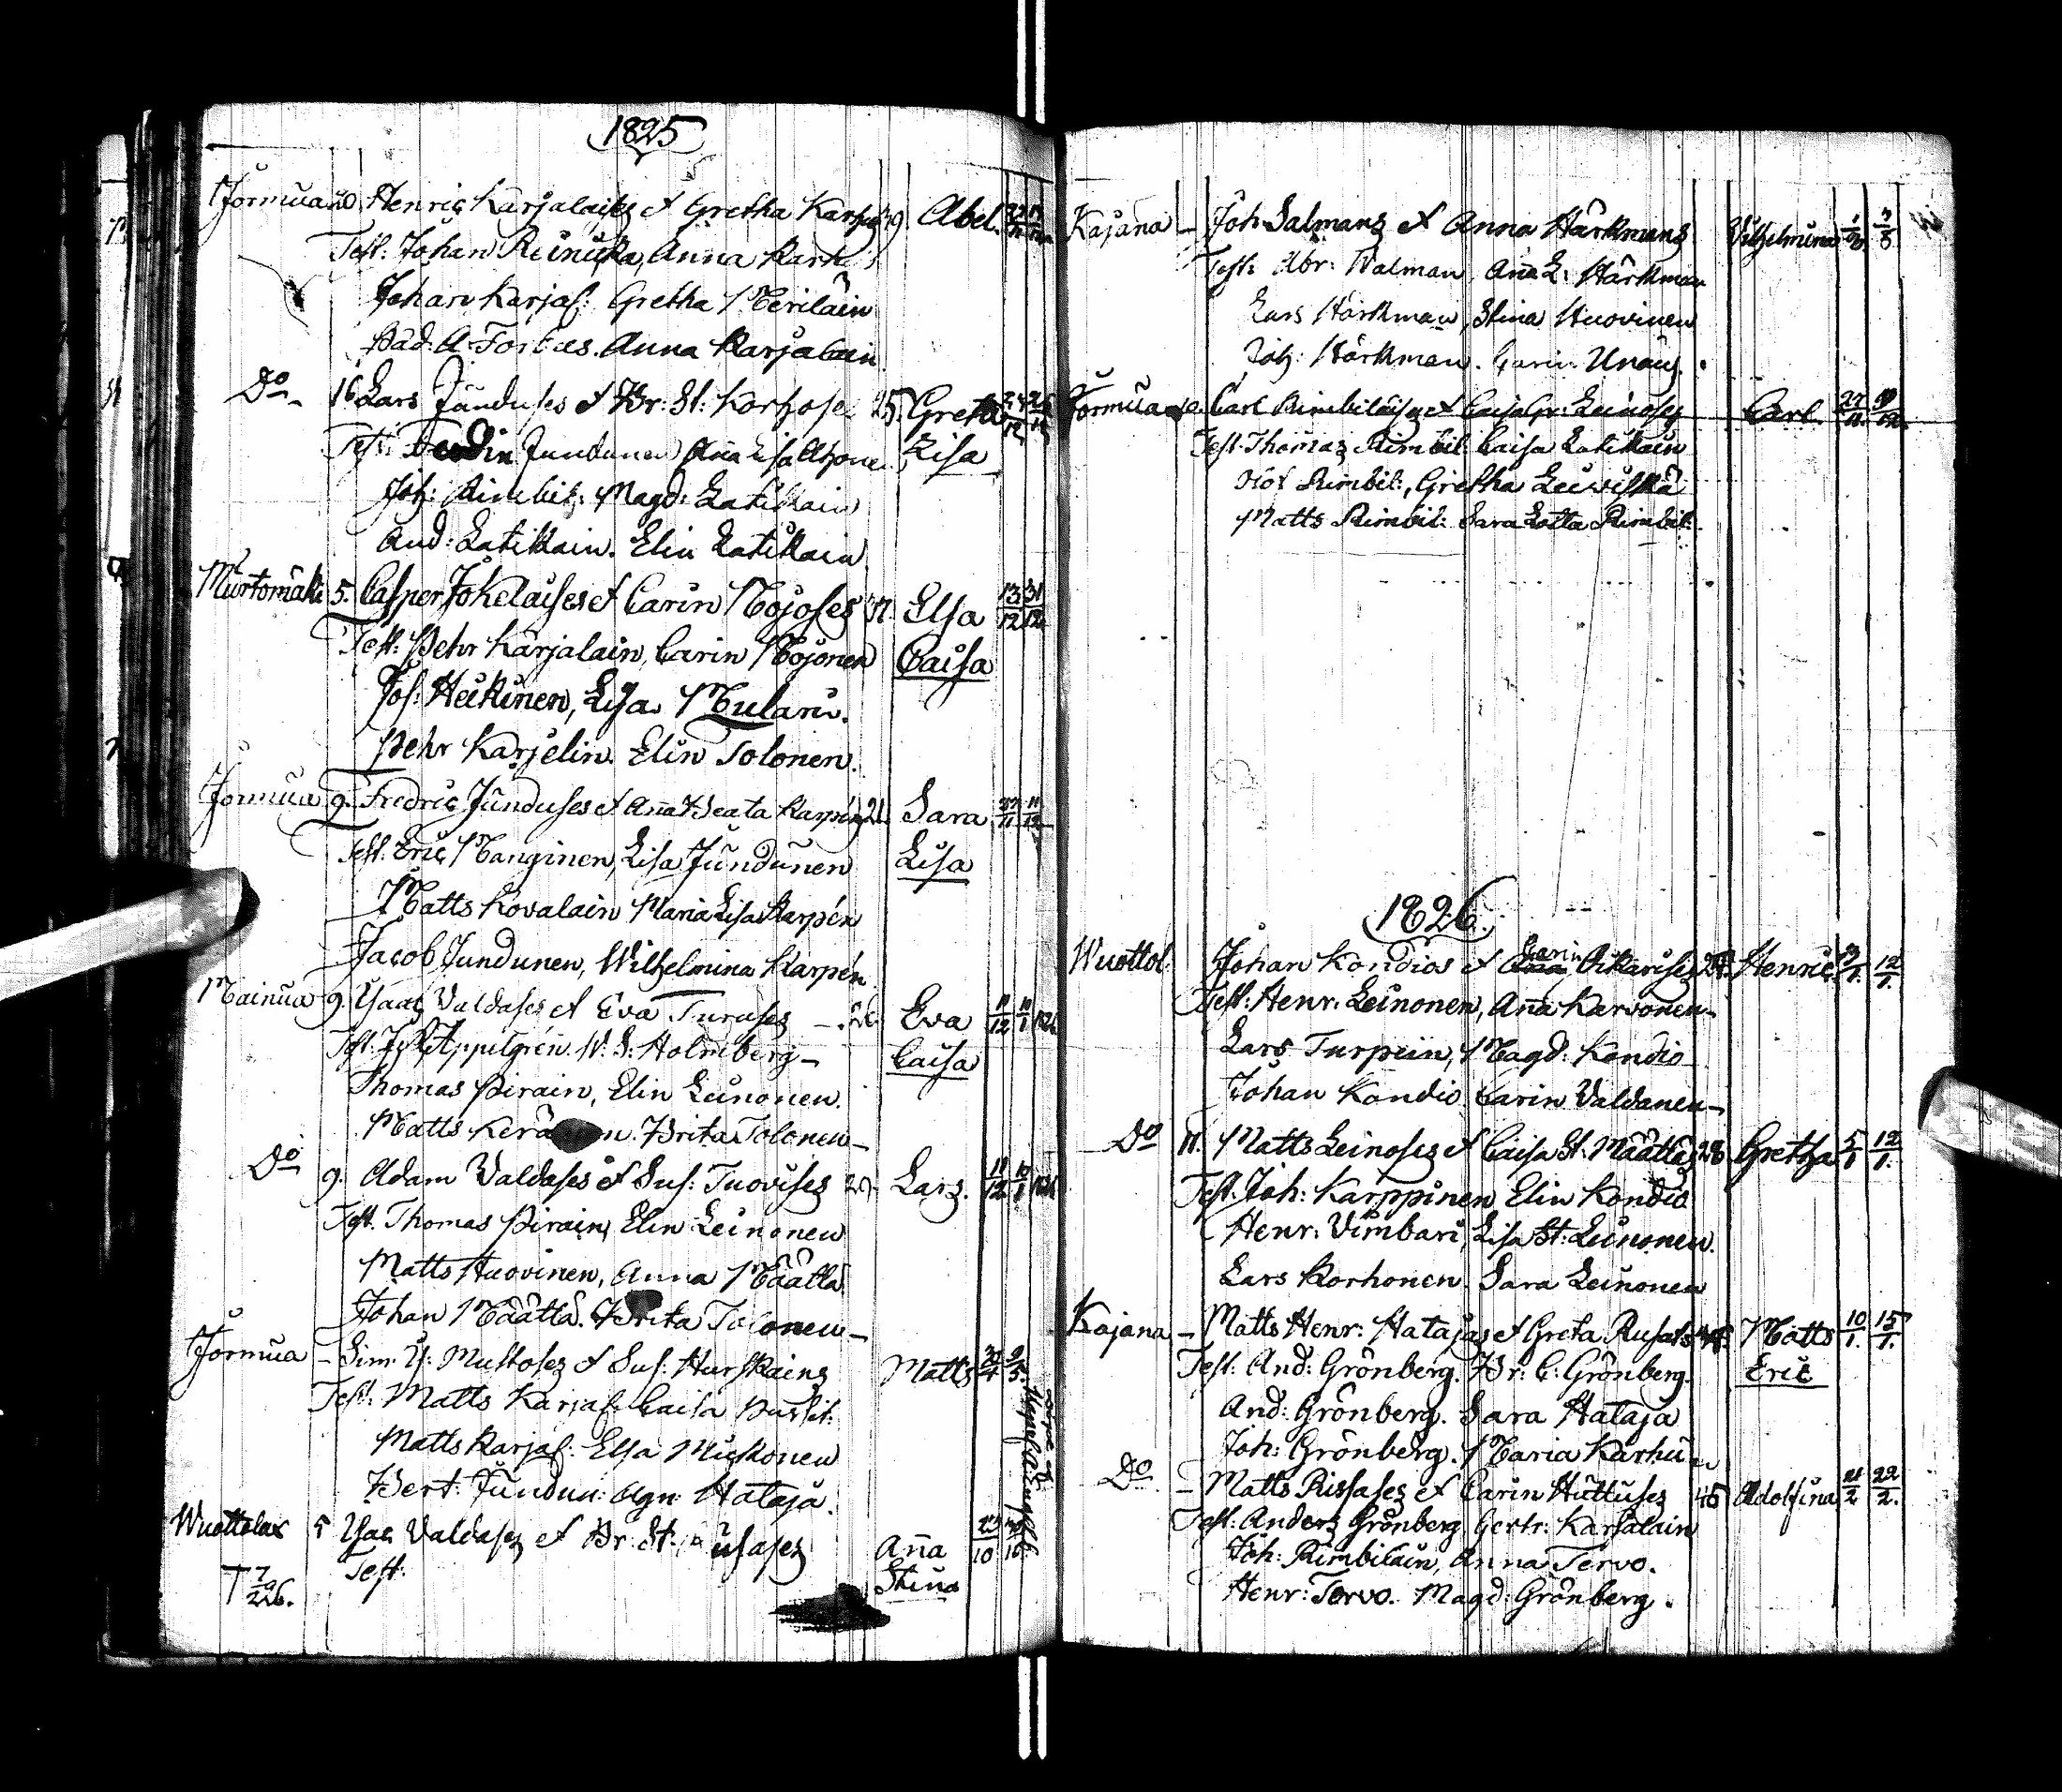 1825
Jormua 20 Henric Karjalaises et Gretha Karh 39. Abel
Test: Johan Reinikka, Anna Karh
Johan Karjal: Gretha Meriläin
Anna Karjalain
Do 16 Lars Junduses et Br: St: Korhoses 25. Greta 12
Test: Jundunen Aña Lisa Ahonen Lisa
Joh: Kimbil: Magd: Latikkain
And: Latikkain. Elin Latikkain
Murtomäki 5. Casper Jokelaises et Carin Mojoses 37. Elsa 13/12 31/12
Test: Pehr Karjalain, Carin Mojonen Caisa
Jos: Heikinen, Lisa Mulari.
Pehr Karjelin. Elin Tolonen.
Jormua 9. Fredric Junduses et Aña Beata Karpéns 21. Sara 27/11 11/12
Test: Eric Manginen, Lisa Jundunen Lisa
Matts Kovalain Maria Lisa Karpén
Jacob Jundunen, Wilhelmina Karpén
Mainua 9. Isaac Valdases et Eva Turuses 26. Eva 11/12 10/1 1826
Test: Appelgrén. W: S: Holmberg Caisa
Thomas Pirain, Elin Leinonen.
Matts Brita Tolonen
Do 9. Adam Valdases et Sus: Tuovises Lars. 11/12 10/1 1826
Test. Thomas Pirain, Elin Leinonen
Matts Huovinen, Anna Määttä
Johan Määttä. Brita Tolonen
Jormua – Sim: Mustoses et Sus: Hurskains Matts 30/4 9/5
Test: Matts Karjal: Caisa
Matts Karjal: Elsa Mustonen
Bert: Jundun: Agn: Hataja.
Wuottolax 5 Isac Valdases et Br: St: Aña 23/10
Test: Stina
† 7/2 26.
Kajana – Joh: Salmans et Anna Härkmans Vilhelmina
Test: Abr: Walman, Aña L: Härkman
Lars Härkman, Stina Huovinen
Joh: Härkman. Carin
Jormua Carl Kimbiläises et Caisa Gr: Leinoses Carl. 27/11
Test: Thomas Kimbil: Caisa Latikkain
Olof Kimbil:, Gretha Leiviskä
Matts Kimbil: Sara Lotta Kimbil:
1826
Wuottol: Johan Kondios et Carin Oikarises Henric 12/1
Test: Henr: Leinonen, Aña Karvonen
Lars Turpein, Magd: Kondio
Johan Kondio Carin Valdanen
Do 11. Matts Leinoses et Caisa St: Määttäs 28 Gretha 5/1 12/1
Test: Joh: Karppinen Elin Kondio
Henr: Vimbari, Lisa St: Leinonen.
Lars Korhonen. Sara Leinonen
Kajana – Matts Henr: Hatajas et Greta Matts 10/1 15/1
Test: And: Grönberg. Br: C: Grönberg. Eric
And: Grönberg. Sara Hataja
Joh: Grönberg. Maria Karhu
Do – Matts Rissases et Carin Huttuses 45 Adolfina 21/2 22/2.
Test: Anders Grönberg Gertr: Karjalain
Joh: Kimbiläin, Anna Tervo.
Henr: Tervo. Magd: Grönberg.